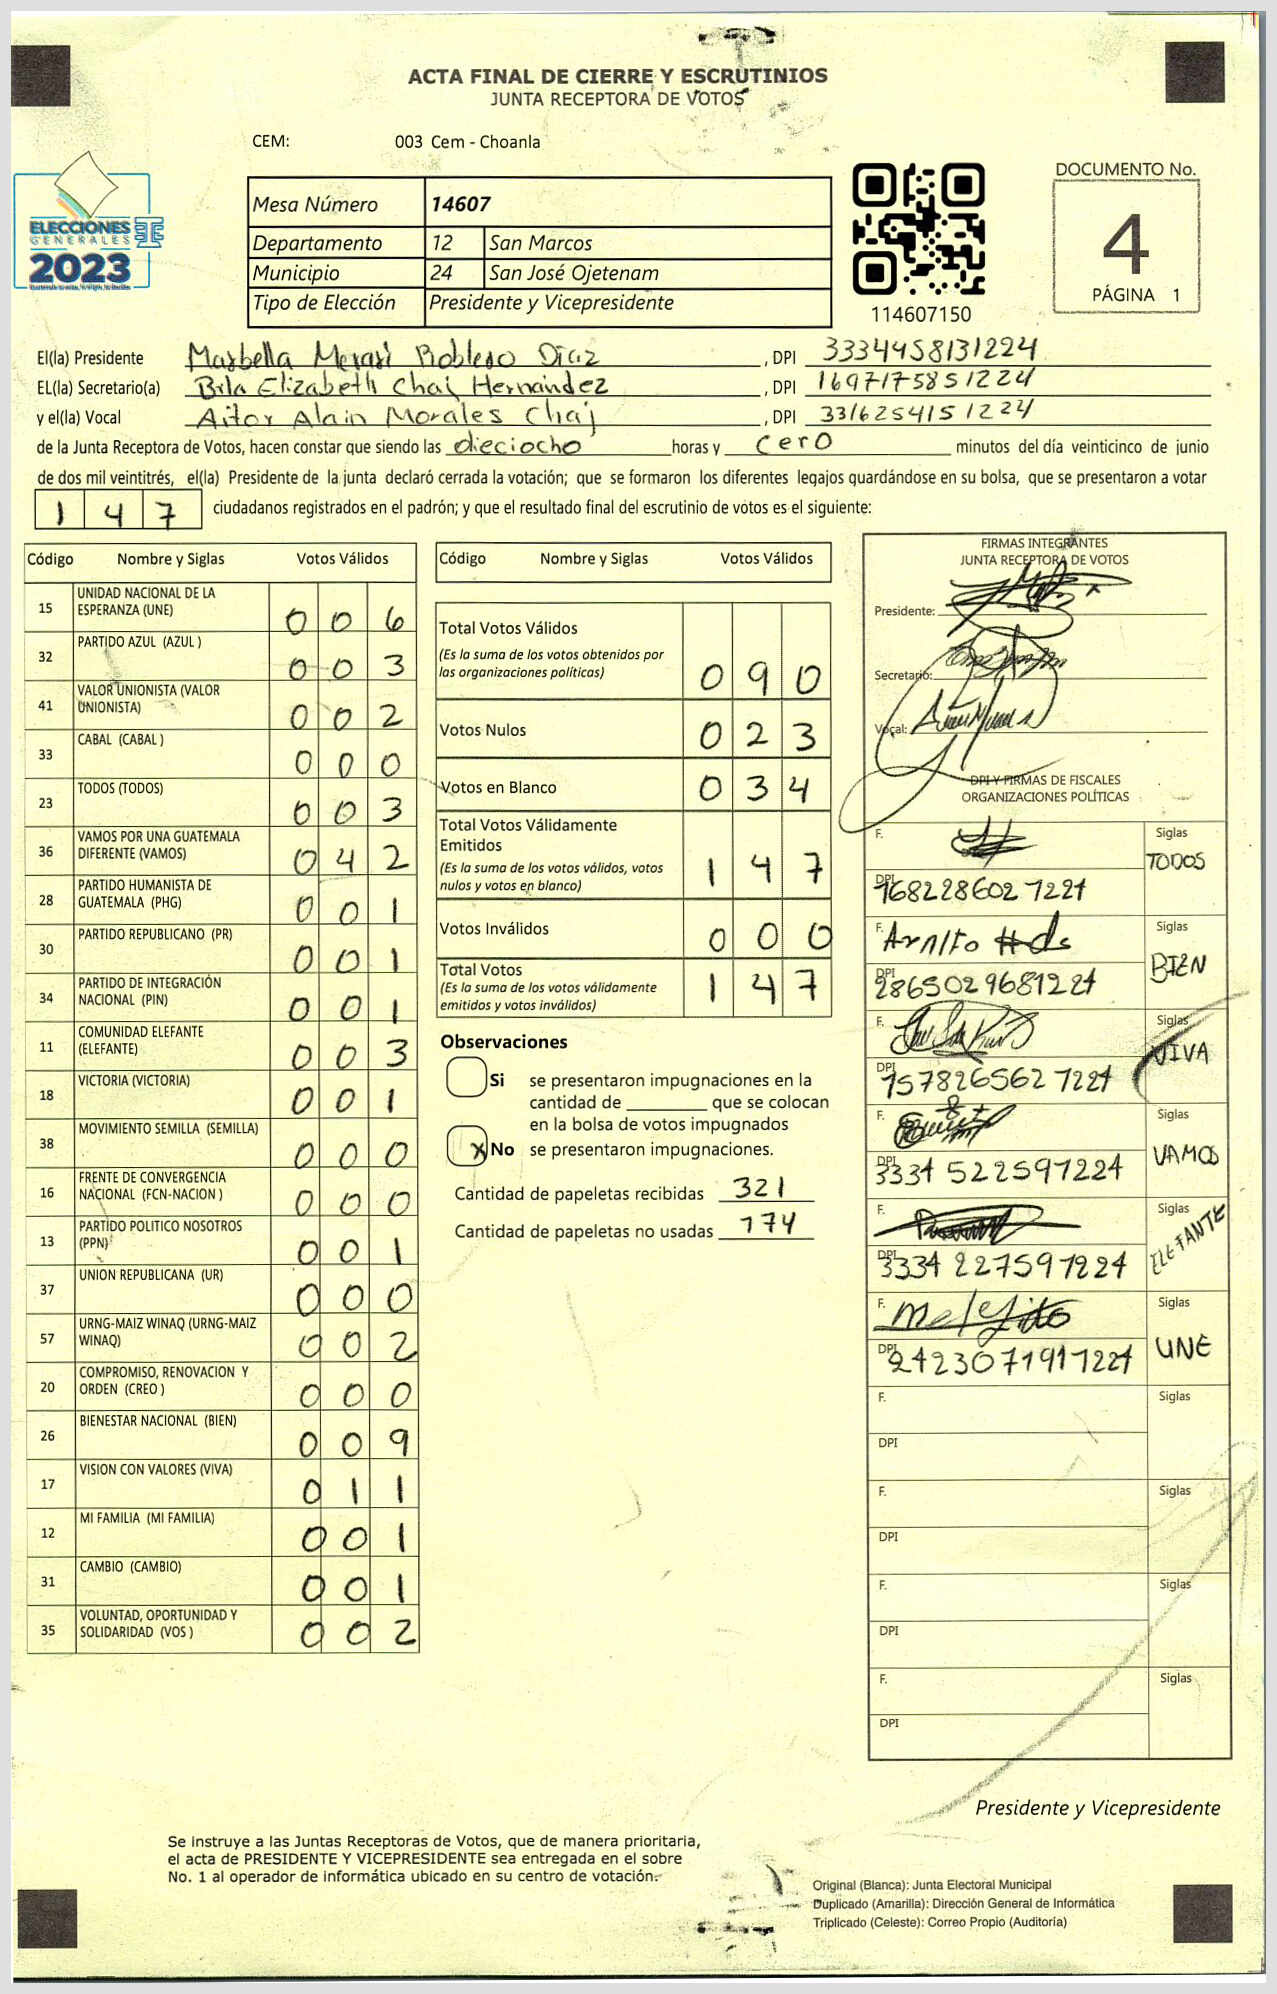 ACTA FINAL DE CIERRE Y ESCRUTINIOS
JUNTA RECEPTORA DE VOTOS
CEM: 003 Cem - Choanla
ELECCIONES
GENERALES
2023
Mesa Número 14607
Departamento 12 San Marcos
Municipio 24 San José Ojetenam
Tipo de Elección Presidente y Vicepresidente
114607150
DOCUMENTO No.
4
PÁGINA 1
El(la) Presidente Marbella Merari Robleso Díaz, DPI 3334458131224
EL(la) Secretario(a) Brla Elizabeth Chaj Hernández, DPI 1697175851224
y el(la) Vocal Aitor Alain Morales Chaj, DPI 3316254151224
de la Junta Receptora de Votos, hacen constar que siendo las dieciocho horas y cero minutos del día veinticinco de junio
de dos mil veintitrés, el(la) Presidente de la junta declaró cerrada la votación; que se formaron los diferentes legajos guardándose en su bolsa, que se presentaron a votar
147 ciudadanos registrados en el padrón; y que el resultado final del escrutinio de votos es el siguiente:
Código Nombre y Siglas Votos Válidos
15 UNIDAD NACIONAL DE LA
ESPERANZA (UNE) 006
32 PARTIDO AZUL (AZUL ) 003
41 VALOR UNIONISTA (VALOR
UNIONISTA) 002
33 CABAL (CABAL ) 000
23 TODOS (TODOS) 003
36 VAMOS POR UNA GUATEMALA
DIFERENTE (VAMOS) 042
28 PARTIDO HUMANISTA DE
GUATEMALA (PHG) 001
30 PARTIDO REPUBLICANO (PR) 001
34 PARTIDO DE INTEGRACIÓN
NACIONAL (PIN) 001
11 COMUNIDAD ELEFANTE
(ELEFANTE) 003
18 VICTORIA (VICTORIA) 001
38 MOVIMIENTO SEMILLA (SEMILLA) 000
16 FRENTE DE CONVERGENCIA
NACIONAL (FCN-NACION ) 000
13 PARTIDO POLITICO NOSOTROS
(PPN) 001
37 UNION REPUBLICANA (UR) 000
57 URNG-MAIZ WINAQ (URNG-MAIZ
WINAQ) 002
20 COMPROMISO, RENOVACION Y
ORDEN (CREO ) 000
26 BIENESTAR NACIONAL (BIEN) 009
17 VISION CON VALORES (VIVA) 011
12 MI FAMILIA (MI FAMILIA) 001
31 CAMBIO (CAMBIO) 001
35 VOLUNTAD, OPORTUNIDAD Y
SOLIDARIDAD (VOS ) 002
Código Nombre y Siglas Votos Válidos
Total Votos Válidos
(Es la suma de los votos obtenidos por
las organizaciones políticas) 090
Votos Nulos 023
Votos en Blanco 034
Total Votos Válidamente
Emitidos
(Es la suma de los votos válidos, votos
nulos y votos en blanco) 147
Votos Inválidos 000
Total Votos
(Es la suma de los votos válidamente
emitidos y votos inválidos) 147
Observaciones
Si se presentaron impugnaciones en la
cantidad de ________ que se colocan
en la bolsa de votos impugnados
X No se presentaron impugnaciones.
Cantidad de papeletas recibidas 321
Cantidad de papeletas no usadas 174
FIRMAS INTEGRANTES
JUNTA RECEPTORA DE VOTOS
Presidente:
Secretario:
Vocal:
DPI Y FIRMAS DE FISCALES
ORGANIZACIONES POLÍTICAS
F. Siglas
TODOS
DPI 1682286021221
F. Siglas
BIEN
DPI 2865029681221
F. Siglas
VIVA
DPI 1578265621221
F. Siglas
VAMOS
DPI 3334522591224
F. Siglas
ELEFANTE
DPI 3334227591224
F. Siglas
UNE
DPI 2423071911221
F. Siglas
DPI
F. Siglas
DPI
F. Siglas
DPI
F. Siglas
DPI
Presidente y Vicepresidente
Se instruye a las Juntas Receptoras de Votos, que de manera prioritaria,
el acta de PRESIDENTE Y VICEPRESIDENTE sea entregada en el sobre
No. 1 al operador de informática ubicado en su centro de votación.
Original (Blanca): Junta Electoral Municipal
Duplicado (Amarilla): Dirección General de Informática
Triplicado (Celeste): Correo Propio (Auditoría)